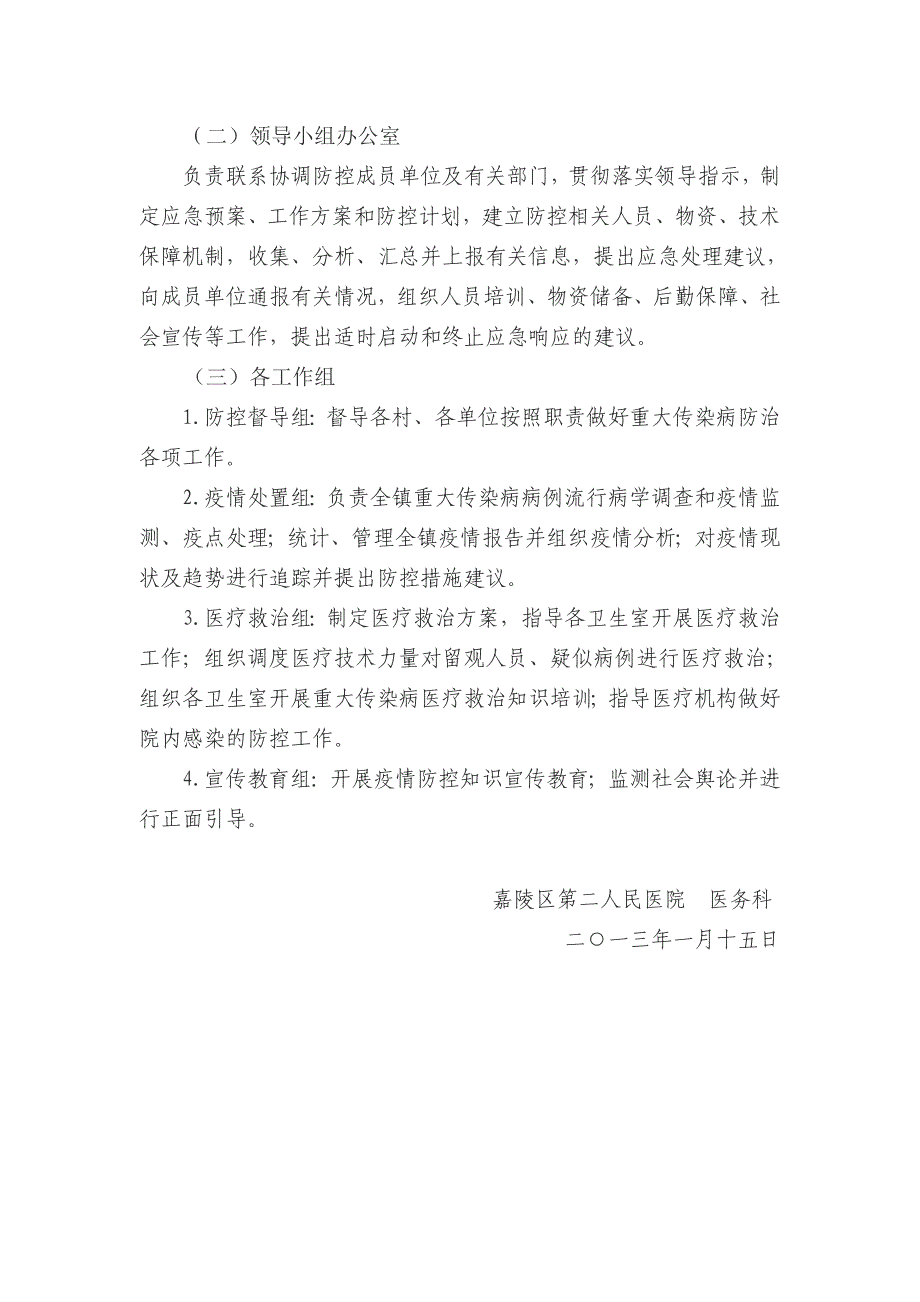 （二）领导小组办公室
负责联系协调防控成员单位及有关部门，贯彻落实领导指示，制
定应急预案、工作方案和防控计划，建立防控相关人员、物资、技术
保障机制，收集、分析、汇总并上报有关信息，提出应急处理建议，
向成员单位通报有关情况，组织人员培训、物资储备、后勤保障、社
会宣传等工作，提出适时启动和终止应急响应的建议。
（三）各工作组
1.防控督导组：督导各村、各单位按照职责做好重大传染病防治
各项工作。
2.疫情处置组：负责全镇重大传染病病例流行病学调查和疫情监
测、疫点处理；统计、管理全镇疫情报告并组织疫情分析；对疫情现
状及趋势进行追踪并提出防控措施建议。
3.医疗救治组：制定医疗救治方案，指导各卫生室开展医疗救治
工作；组织调度医疗技术力量对留观人员、疑似病例进行医疗救治；
组织各卫生室开展重大传染病医疗救治知识培训；指导医疗机构做好
院内感染的防控工作。
4.宣传教育组：开展疫情防控知识宣传教育；监测社会舆论并进
行正面引导。
嘉陵区第二人民医院　医务科
二〇一三年一月十五日